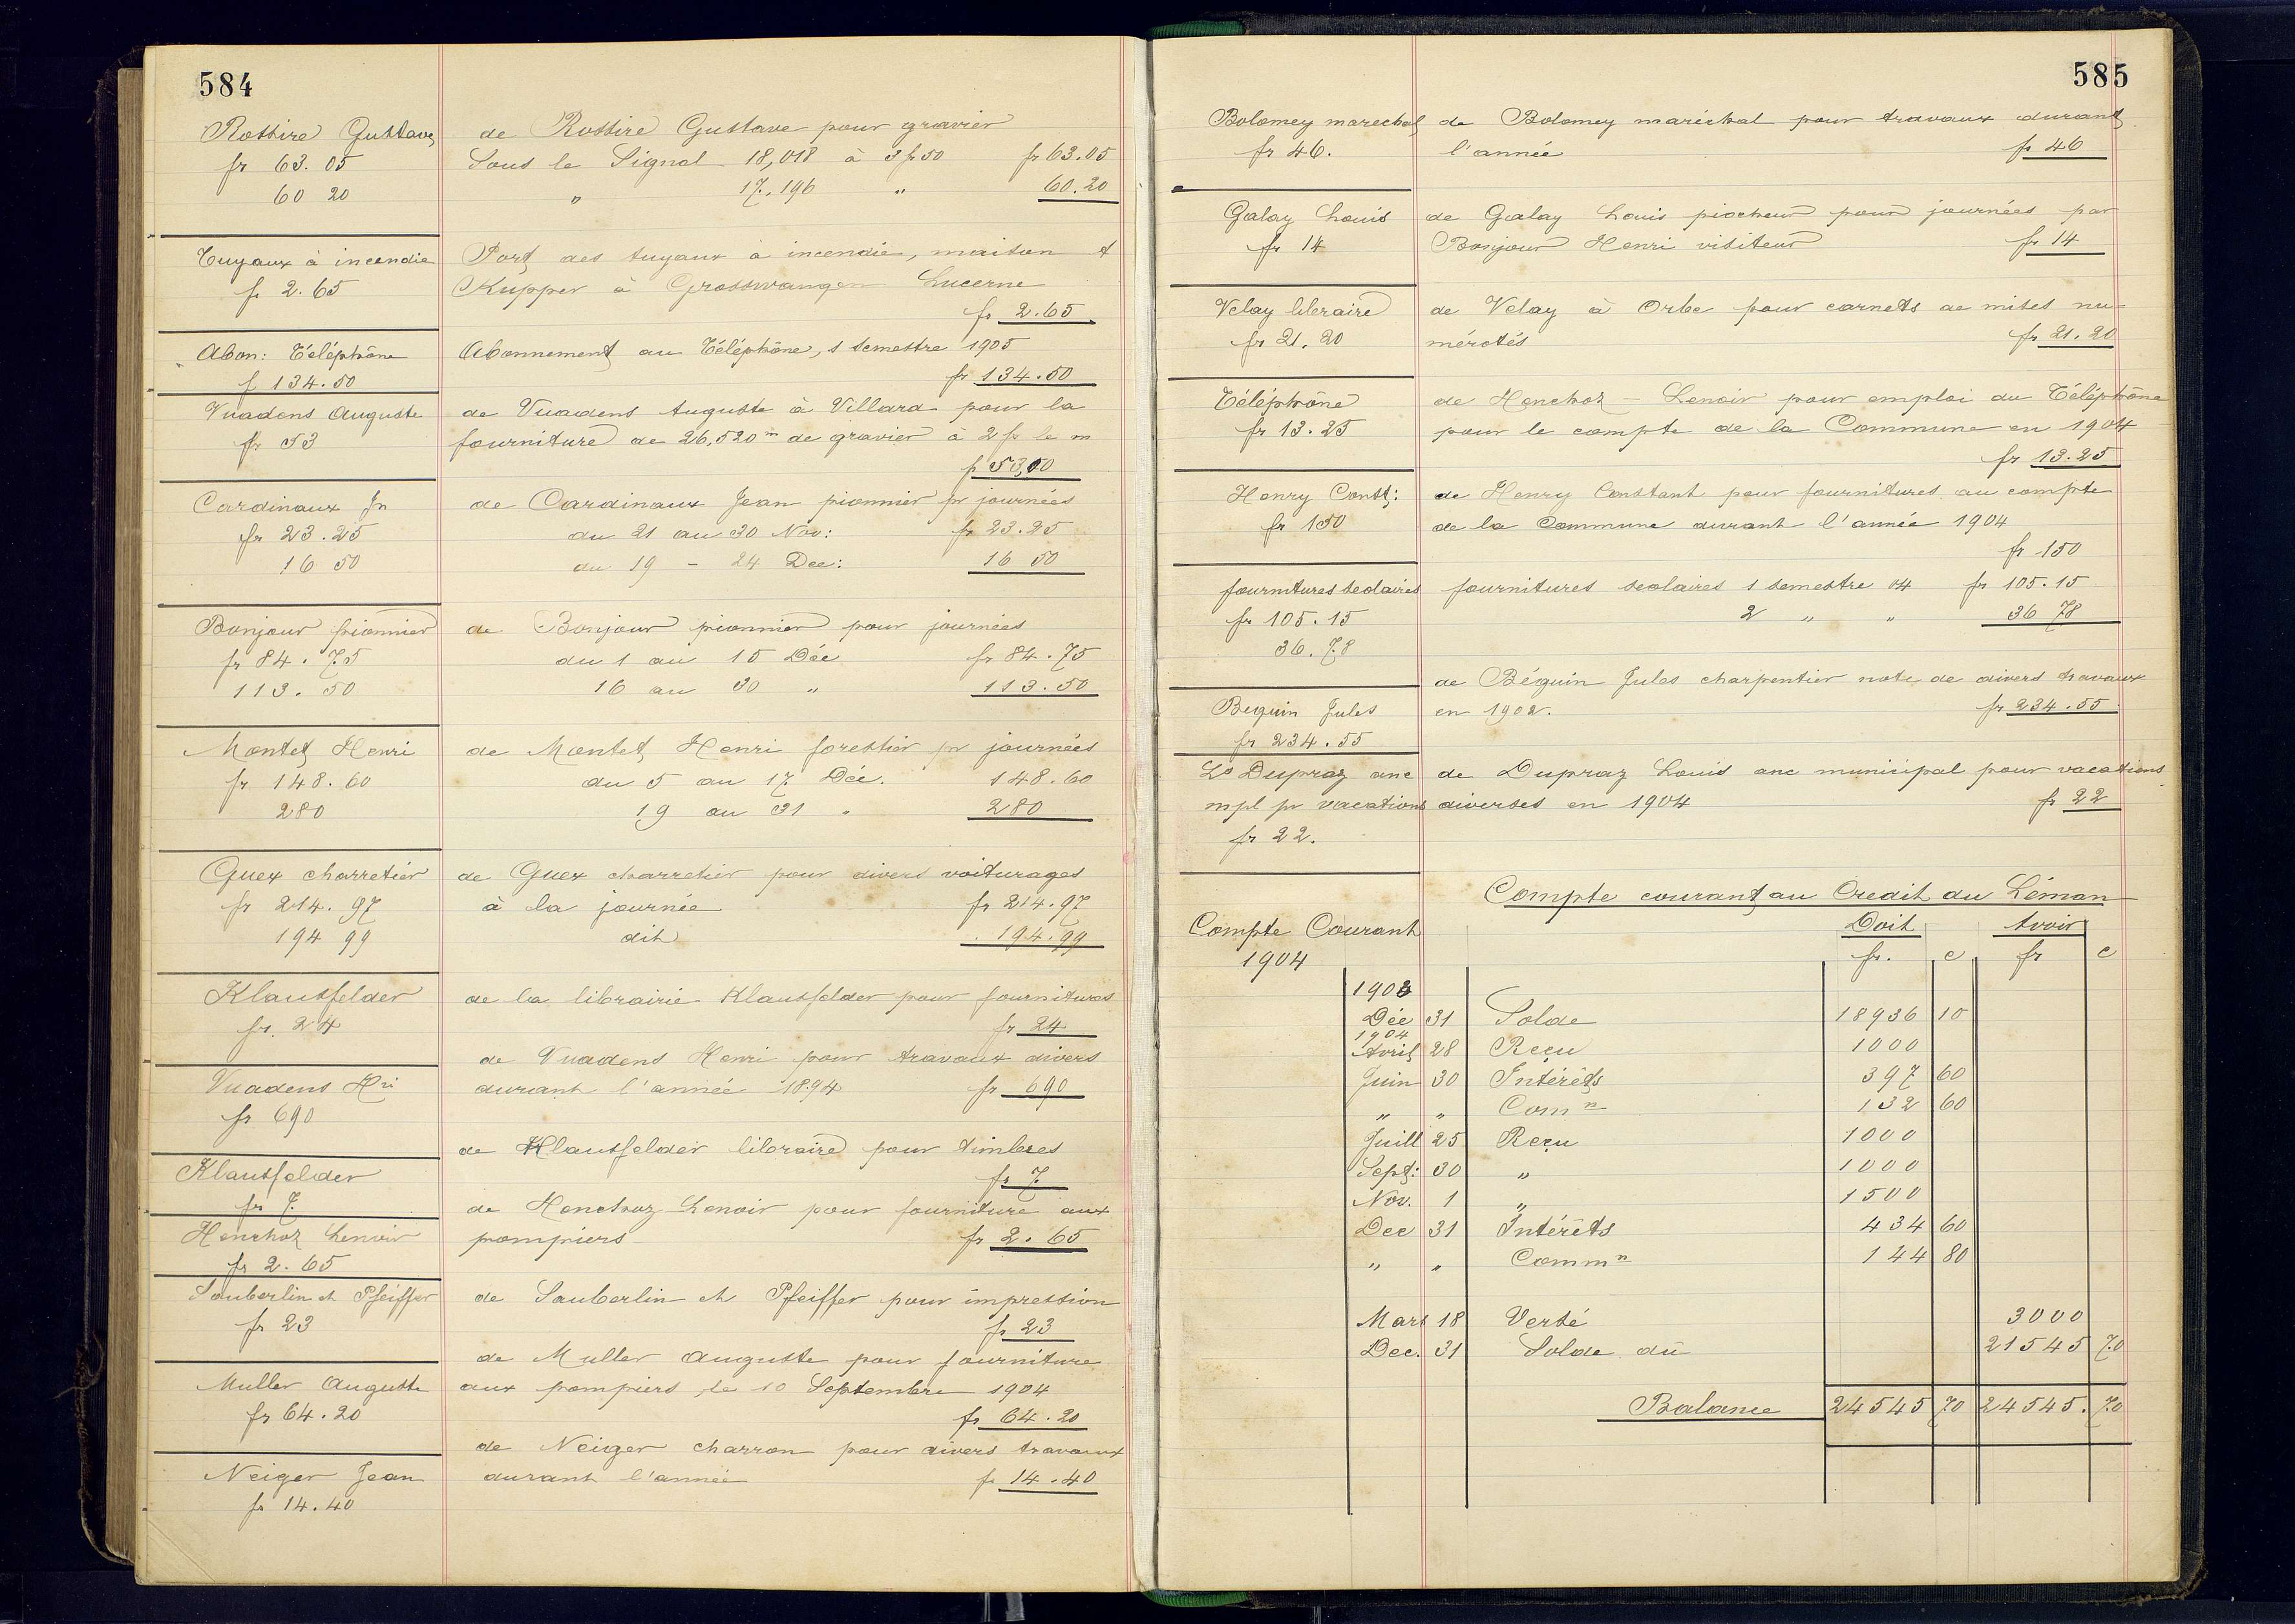 584
Rossire Gustave
fr 63.05
60 20
de Rossire Gustave pour gravier
Sous le Signal 18,018 à 3 fr 50 fr 63.05
" 17,196 " 60.20
Tuyaux à incendie
fr 2.65
Port des tuyaux à incendie, maison A
Kupper à Grosswangen Lucerne
fr 2.65
Abon: Téléphône
f 134.50
Abonnement au Téléphône, 1 semestre 1905
fr 134.50
Vuadens Auguste
fr 53
de Vuadens Auguste à Villard pour la
fourniture de 26,520 m de gravier à 2 fr le m
fr 53,00
Cardinaux Jn
fr 23.25
16 50
de Cardinaux Jean pionnier pr journées
du 21 au 30 Nov: fr 23.25
du 19 - 24 Dec: 16 50
Bonjour pionnier
fr 84.75
113.50
de Bonjour pionnier pour journées
du 1 au 15 Déc fr 84.75
16 au 30 " 113.50
Montet Henri
fr 148.60
280
de Montet Henri forestier pr journées
du 5 au 17 Déc. 148.60
19 au 31 " 280
Guex charretier
fr 214.97
194 99
de Guex charretier pour divers voiturages
à la journée fr 214.97
dit 194.99
Klausfelder
fr. 24
de la librairie Klausfelder pour fournitures
fr 24
Vuadens Hri
fr 690
de Vuadens Henri pour travaux divers
durant l'année 1894 fr 690
Klausfelder
fr 7.
de Klausfelder libraire pour timbres
fr 7.
Henchoz Lenoir
fr 2.65
de Henchoz Lenoir pour fourniture aux
pompiers fr 2.65
Sauberlin et Pfeiffer
fr 23
de Sauberlin et Pfeiffer pour impression
fr 23
Muller Auguste
fr 64.20
de Muller Auguste pour fourniture
aux pompiers, le 10 Septembre 1904
fr 64.20
Neiger Jean
fr 14.40
de Neiger charron pour divers travaux
durant l'année fr 14.40
585
Bolomey marechal
fr 46.
de Bolomey maréchal pour travaux durant
l'année fr 46
Galay Louis
fr 14
de Galay Louis piocheur pour journées par
Bonjour Henri visiteur fr 14
Velay libraire
fr 21.20
de Velay à Orbe pour carnets de mises nu=
mérotés fr 21.20
Téléphône
fr 13.25
de Henchoz - Lenoir pour emploi du Téléphône
pour le compte de la Commune en 1904
fr 13.25
Henry Const:
fr 150
de Henry Constant pour fournitures au compte
de la Commune durant l'année 1904
fr 150
fournitures scolaires
fr 105.15
36.78
fournitures scolaires 1 semestre 04 fr 105.15
2 " " 36 78
Beguin Jules
fr 234.55
de Béguin Jules charpentier note de divers travaux
en 1902. fr 234.55
Ls Dupraz anc
mpl pr vacations
fr 22.
de Dupraz Louis anc municipal pour vacations
diverses en 1904 fr 22
Compte Courant
1904
Compte courant au Credit du Léman
Doit Avoir
fr. c fr c
1903
Déc 31 Solde 18936 10
1904
Avril 28 Reçu 1000
Juin 30 Intérêts 397 60
" " Comn 132 60
Juill 25 Reçu 1000
Sept: 30 " 1000
Nov. 1 " 1500
Dec 31 Intérêts 434 60
" " Commn 144 80
Mars 18 Versé 3000
Dec. 31 Solde dû 21545 70
Balance 24545 70 24545.70